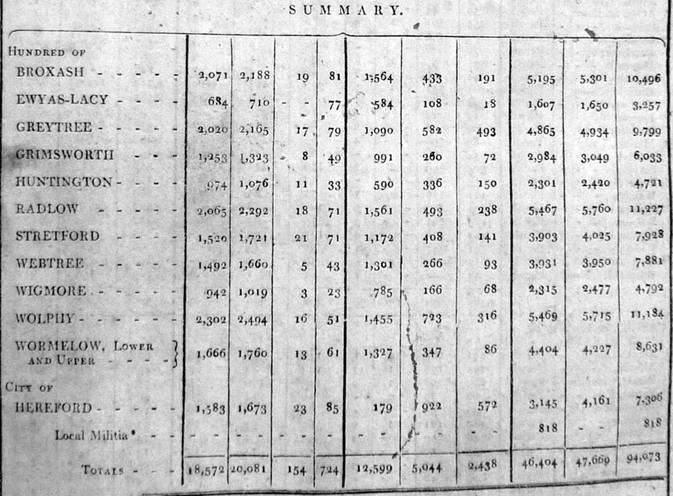 SUMMARY.
HUNDRED OF
BROXASH - - - - - 2,071 2,188 19 81 1,564 433 191 5,195 5,301 10,496
EWYAS-LACY - - - - 684 710 - - 77 584 108 18 1,607 1,650 3,257
GREYTREE - - - - - 2,020 2,165 17 79 1,090 582 493 4,865 4,934 9,799
GRIMSWORTH - - - 1,253 1,323 8 49 991 260 72 2,984 3,049 6,033
HUNTINGTON - - - - 974 1,076 11 33 590 336 150 2,301 2,420 4,721
RADLOW - - - - - 2,065 2,292 18 71 1,561 493 238 5,467 5,760 11,227
STRETFORD - - - - 1,520 1,721 21 71 1,172 408 141 3,903 4,025 7,928
WEBTREE - - - - - 1,492 1,660 5 43 1,301 266 93 3,931 3,950 7,881
WIGMORE - - - - - 942 1,019 3 23 785 166 68 2,315 2,477 4,792
WOLPHY - - - - - 2,302 2,494 16 51 1,455 723 316 5,469 5,715 11,184
WORMELOW, LOWER
AND UPPER - - - - } 1,666 1,760 13 61 1,327 347 86 4,404 4,227 8,631
CITY OF
HEREFORD - - - - - 1,583 1,673 23 85 179 922 572 3,145 4,161 7,306
Local Militia* - - - - - - - - - 818 - - 818
TOTALS - - - 18,572 20,081 154 724 12,599 5,044 2,438 46,404 47,669 94,073